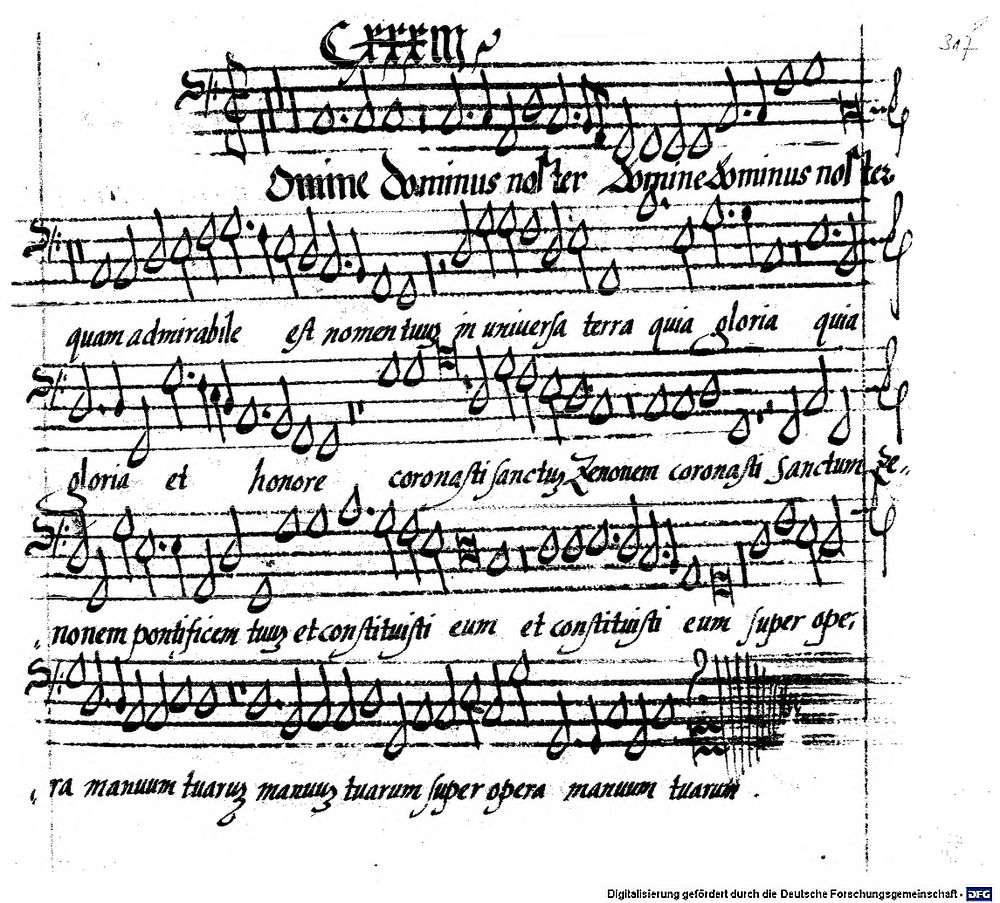 CXXXIII
317
Domine dominus noster Domine dominus noster
quam admirabile est nomen tuuʒ in universa terra quia gloria quia
gloria et honore coronasti sanctuʒ Zenonem coronasti Sanctum Ze-
nonem pontificem tuuʒ et constituisti eum et constituisti eum super ope-
ra manuum tuaruʒ manuuʒ tuarum super opera manuum tuarum .
Digitalisierung gefördert durch die Deutsche Forschungsgemeinschaft - DFG